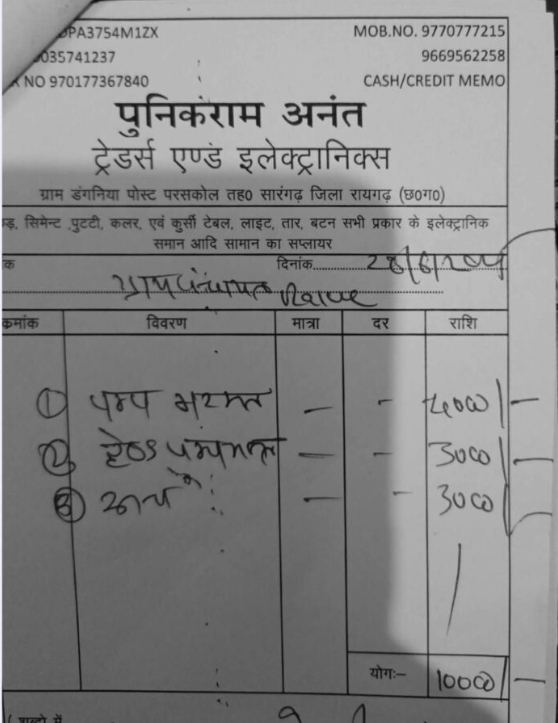 DPA3754M1ZX MOB.NO. 9770777215
035741237 9669562258
NO 970177367840 CASH/CREDIT MEMO
पुनिकराम अनंत
ट्रेडर्स एण्ड इलेक्ट्रानिक्स
ग्राम डंगनिया पोस्ट परसकोल तह0 सारंगढ़ जिला रायगढ़ (छ0ग0)
सिमेन्ट ,पुटटी, कलर, एवं कुर्सी टेबल, लाइट, तार, बटन सभी प्रकार के इलेक्ट्रानिक
समान आदि सामान का सप्लायर
दिनांक
ग्राम पंचायत
क्रमांक विवरण मात्रा दर राशि
① पम्प मरम्मत — - 4000/-
② हेण्ड पम्प — - 3000/-
③ कार्य — - 3000/-
योगः— 10000/-
शब्दो में